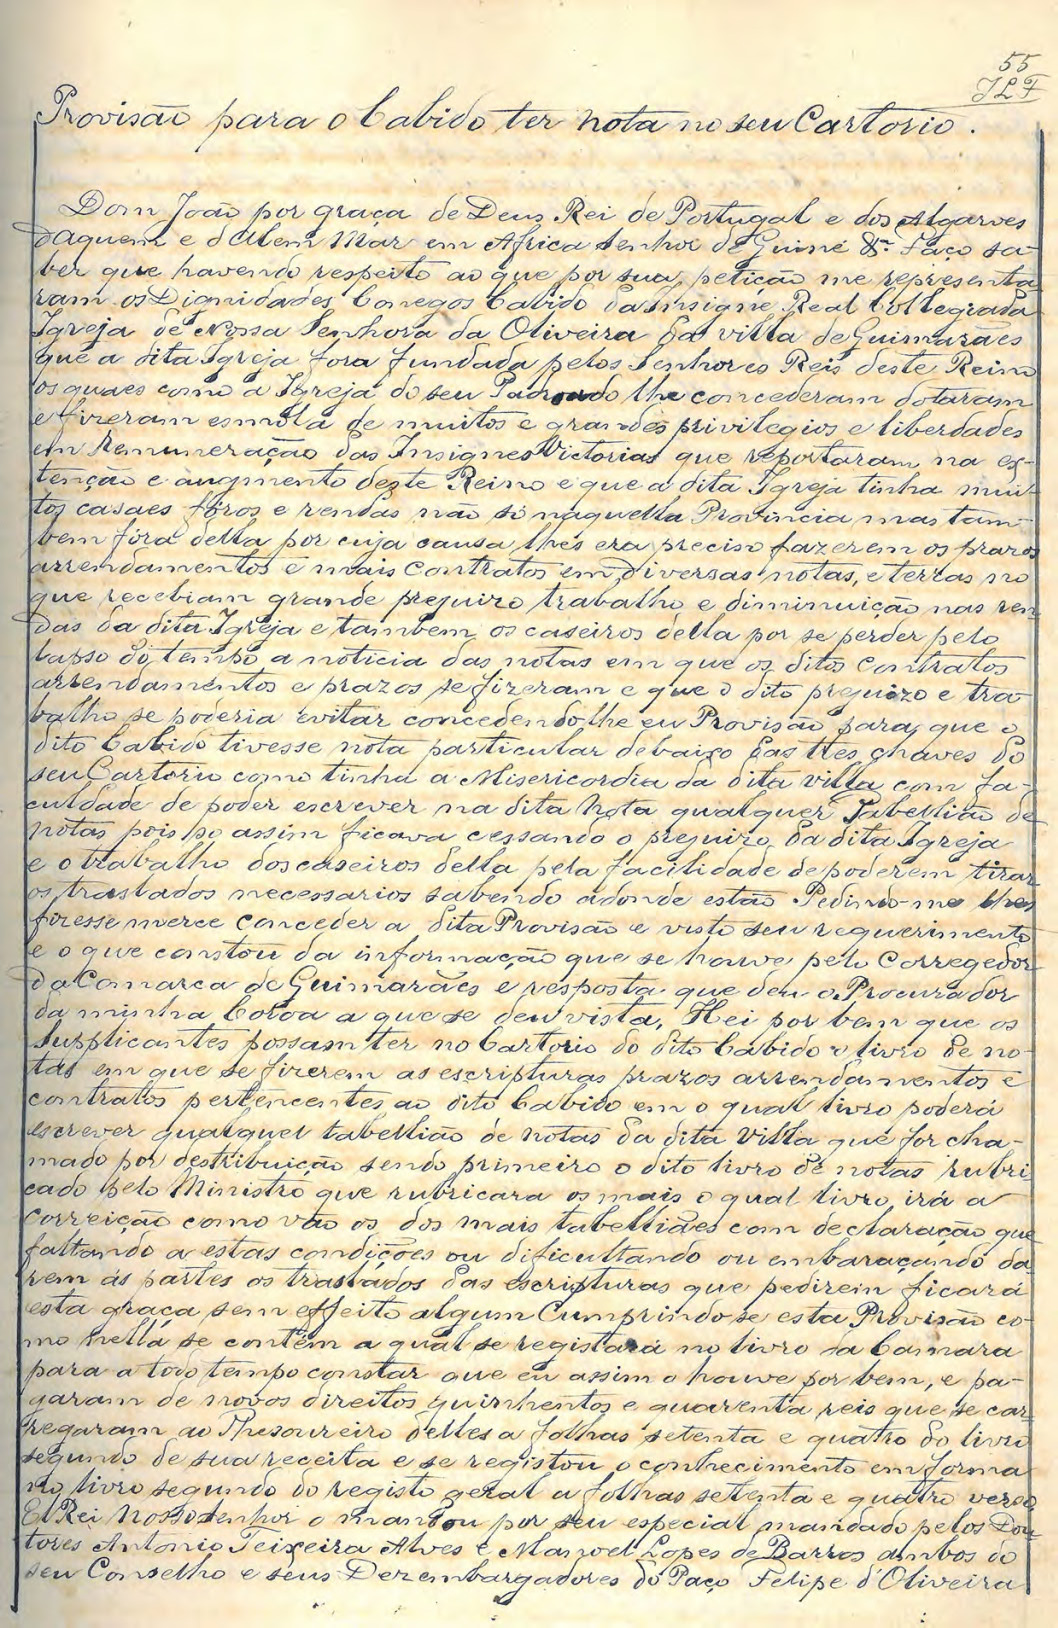 55
JLF
Provisão para o Cabido ter nota no seu Cartorio.
Dom João por graça de Deus Rei de Portugal e dos Algarves
daquem e d'alem Mar em Africa senhor de Guiné &ª Faço sa-
ber que havendo respeito ao que por sua petição me representa
ram os Dignidades Conegos Cabido da Insigne Real Collegiada
Igreja de Nossa Senhora da Oliveira da villa de Guimarães
que a dita Igreja fora fundada pelos Senhores Reis deste Reino
os quaes como a Igreja do seu Padroado lhe concederam dotaram
e fizeram esmola de muitos e grandes privilegios e liberdades
em Remuneração das Insignes Victorias que reportaram na ex-
tenção e augmento deste Reino e que a dita Igreja tinha mui-
tos casaes fóros e rendas não só naquella Provincia mas tam-
bem fóra della por cuja causa lhes era preciso fazerem os prazos
arrendamentos e mais contratos em diversas notas, e terras no
que recebiam grande prejuizo trabalho e diminuição nas ren
das da dita Igreja e tambem os caseiros della por se perder pelo
lapso do tempo a noticia das notas em que os ditos contratos
arrendamentos e prazos se fizeram e que o dito prejuizo e tra-
balho se poderia evitar concedendo-lhe eu Provisão para que o
dito Cabido tivesse nota particular debaixo das tres chaves do
seu Cartorio como tinha a Misericordia da dita villa com fa-
culdade de poder escrever na dita Nota qualquer Tabellião de
notas pois so assim ficava cessando o prejuizo da dita Igreja
e o trabalho dos caseiros della pela facilidade de poderem tirar
os traslados necessarios sabendo adonde estão Pedindo-me lhes
fizesse merce conceder a dita Provisão e visto seu requerimento
e o que constou da informação que se houve pelo Corregedor
da Comarca de Guimarães e resposta que deu o Procurador
da minha Coroa a que se deu vista, Hei por bem que os
Supplicantes possam ter no Cartorio do dito Cabido o livro de no-
tas em que se fizerem as escripturas prazos arrendamentos e
contratos pertencentes ao dito Cabido em o qual livro poderá
escrever qualquer tabellião de notas da dita Villa que for cha-
mado por destribuição sendo primeiro o dito livro de notas rubri
cado pelo Ministro que rubricara os mais o qual livro irá a
correição como vão os dos mais tabelliães com declaração que
faltando a estas condições ou dificultando ou embaraçando da
rem ás partes os traslados das escripturas que pedirem ficará
esta graça sem effeito algum Cumprindo-se esta Provisão co-
mo nella se contém a qual se registará no livro da Camara
para a todo tempo constar que eu assim o houve por bem, e pa-
garam de novos direitos quinhentos e quarenta reis que se car
regaram ao Thesoureiro delles a folhas setenta e quatro do livro
segundo de sua receita e se registou o conhecimento em forma
no livro segundo do registo geral a folhas setenta e quatro verso
El Rei Nosso Senhor o mandou por seu especial mandado pelos Dou
tores Antonio Teixeira Alves e Manoel Lopes de Barros ambos do
seu Conselho e seus Dezembargadores do Paço Felipe d'Oliveira